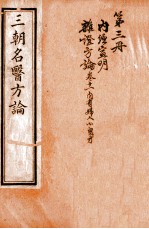 第三冊
內經宣明
雜證方論
三朝名醫方論